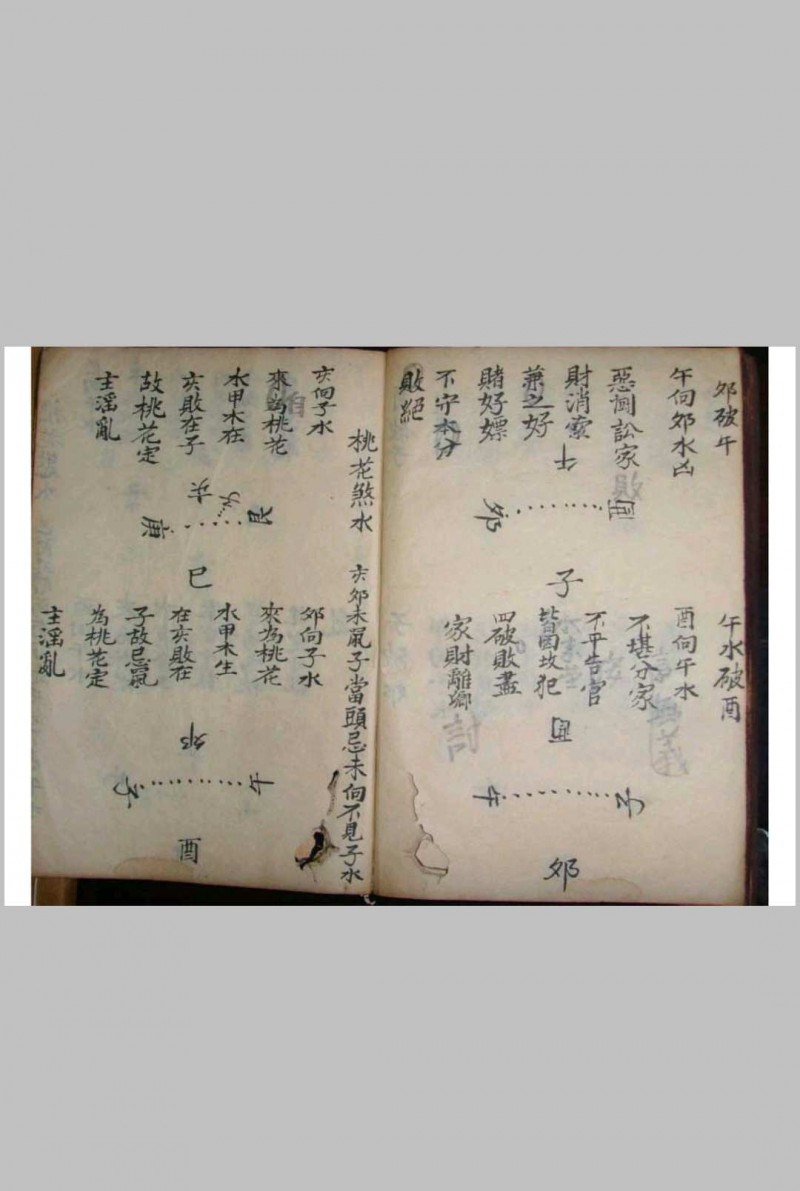 卯破午
午向卯水凶
惡恫訟家
財消索
兼之好
賭好嫖
不守本分
敗絕
午
酉
卯
子
午水破酉
酉向午水
不堪分家
不平告官
皆因坟犯
四破敗盡
家財離鄉
酉
子
午
卯
桃花煞水
亥卯未鼠子當頭忌未向不見子水
亥向子水
來為桃花
水甲木在
亥敗在子
故桃花定
主淫亂
亥
艮
子
庚
巳
卯向子水
來為桃花
水甲木生
在亥敗在
子故忌鼠
為桃花定
主淫亂
卯
午
子
酉